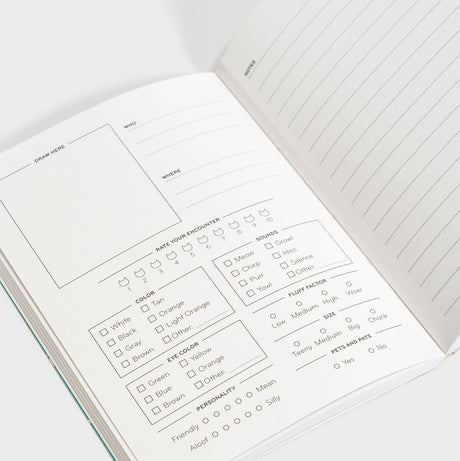 DRAW HERE
WHO
WHERE
RATE YOUR ENCOUNTER
1 2 3 4 5 6 7 8 9 10
COLOR
White Tan
Black Orange
Gray Light Orange
Brown Other:
EYE COLOR
Green Yellow
Blue Orange
Brown Other:
PERSONALITY
Friendly Mean
Aloof Silly
SOUNDS
Meow Growl
Chirp Hiss
Purr Silence
Yowl Other:
FLUFF FACTOR
Low Medium High Wow!
SIZE
Teeny Medium Big Chonk
PETS AND PATS
Yes No
NOTES